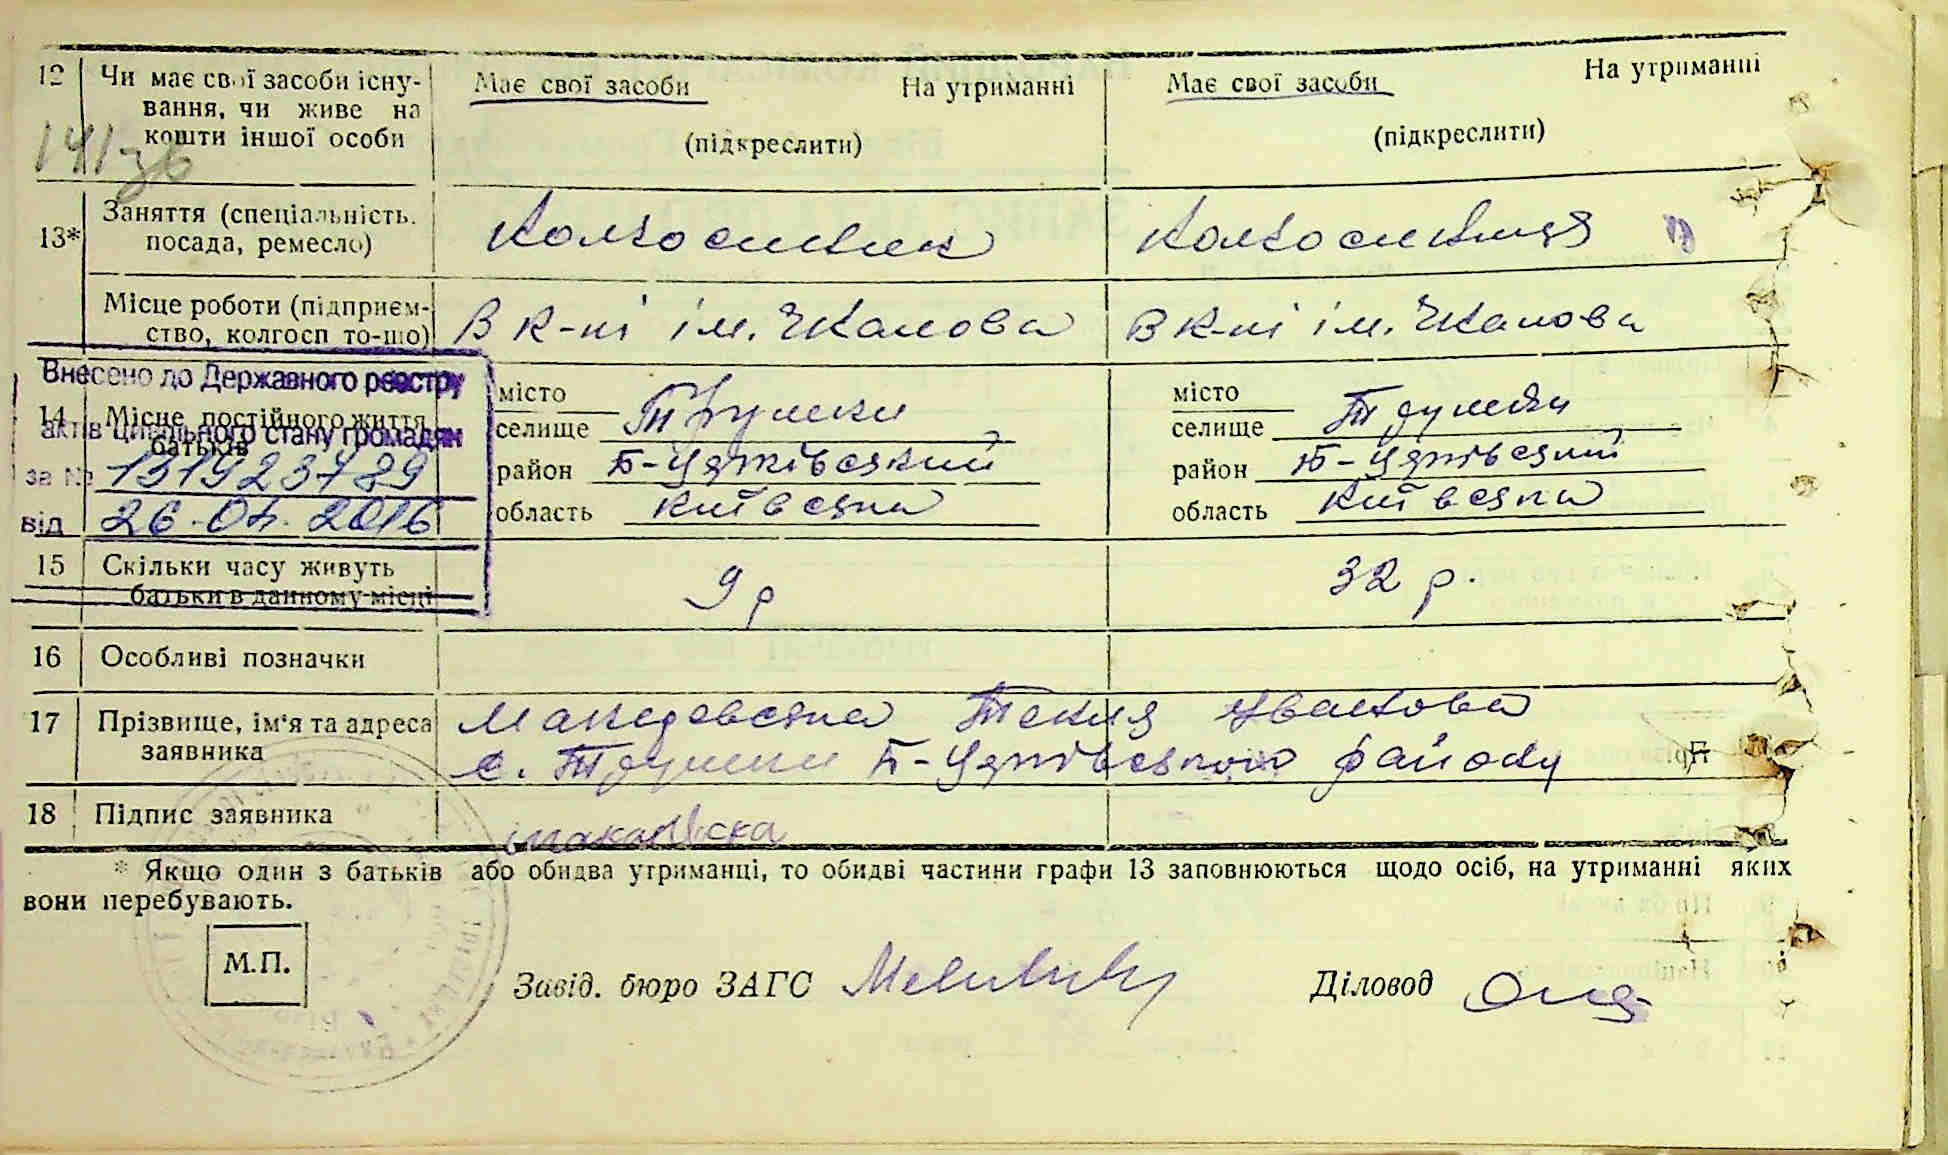 12 Чи має свої засоби існу- Має свої засоби На утриманні Має свої засоби На утриманні
вання, чи живе на
кошти іншої особи (підкреслити) (підкреслити)
141-зв
13* Заняття (спеціальність. Колхосник Колхосниця
посада, ремесло)
Місце роботи (підприєм- В к-пі ім. Чкалова В к-пі ім. Чкалова
ство, колгосп то-що)
Внесено до Державного реєстру
актів цивільного стану громадян
за №
від 26.04.2016
14 Місце постійного життя
батьків
місто місто
селище Трушки селище Трушки
район Б-Церківський район Б-Церківский
область Київська область Київська
15 Скільки часу живуть 9 р 32 р.
батьки в данному місці
16 Особливі позначки
17 Прізвище, ім'я та адреса Текля Іванова
заявника с. Трушки Б-Церківського району
18 Підпис заявника
* Якщо один з батьків або обидва утриманці, то обидві частини графи 13 заповнюються щодо осіб, на утриманні яких
вони перебувають.
М.П.
Завід. бюро ЗАГС Діловод